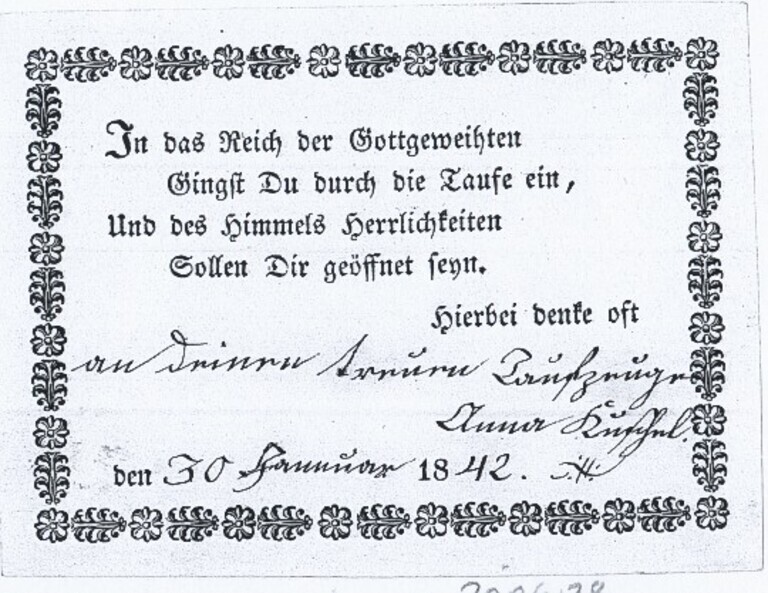 In das Reich der Gottgeweihten
Gingst Du durch die Taufe ein,
Und des Himmels Herrlichkeiten
Sollen Dir geöffnet seyn.
Hierbei denke oft
an deinen treuen Taufzeuge
Anna Kuschel.
den 30 Januar 1842.